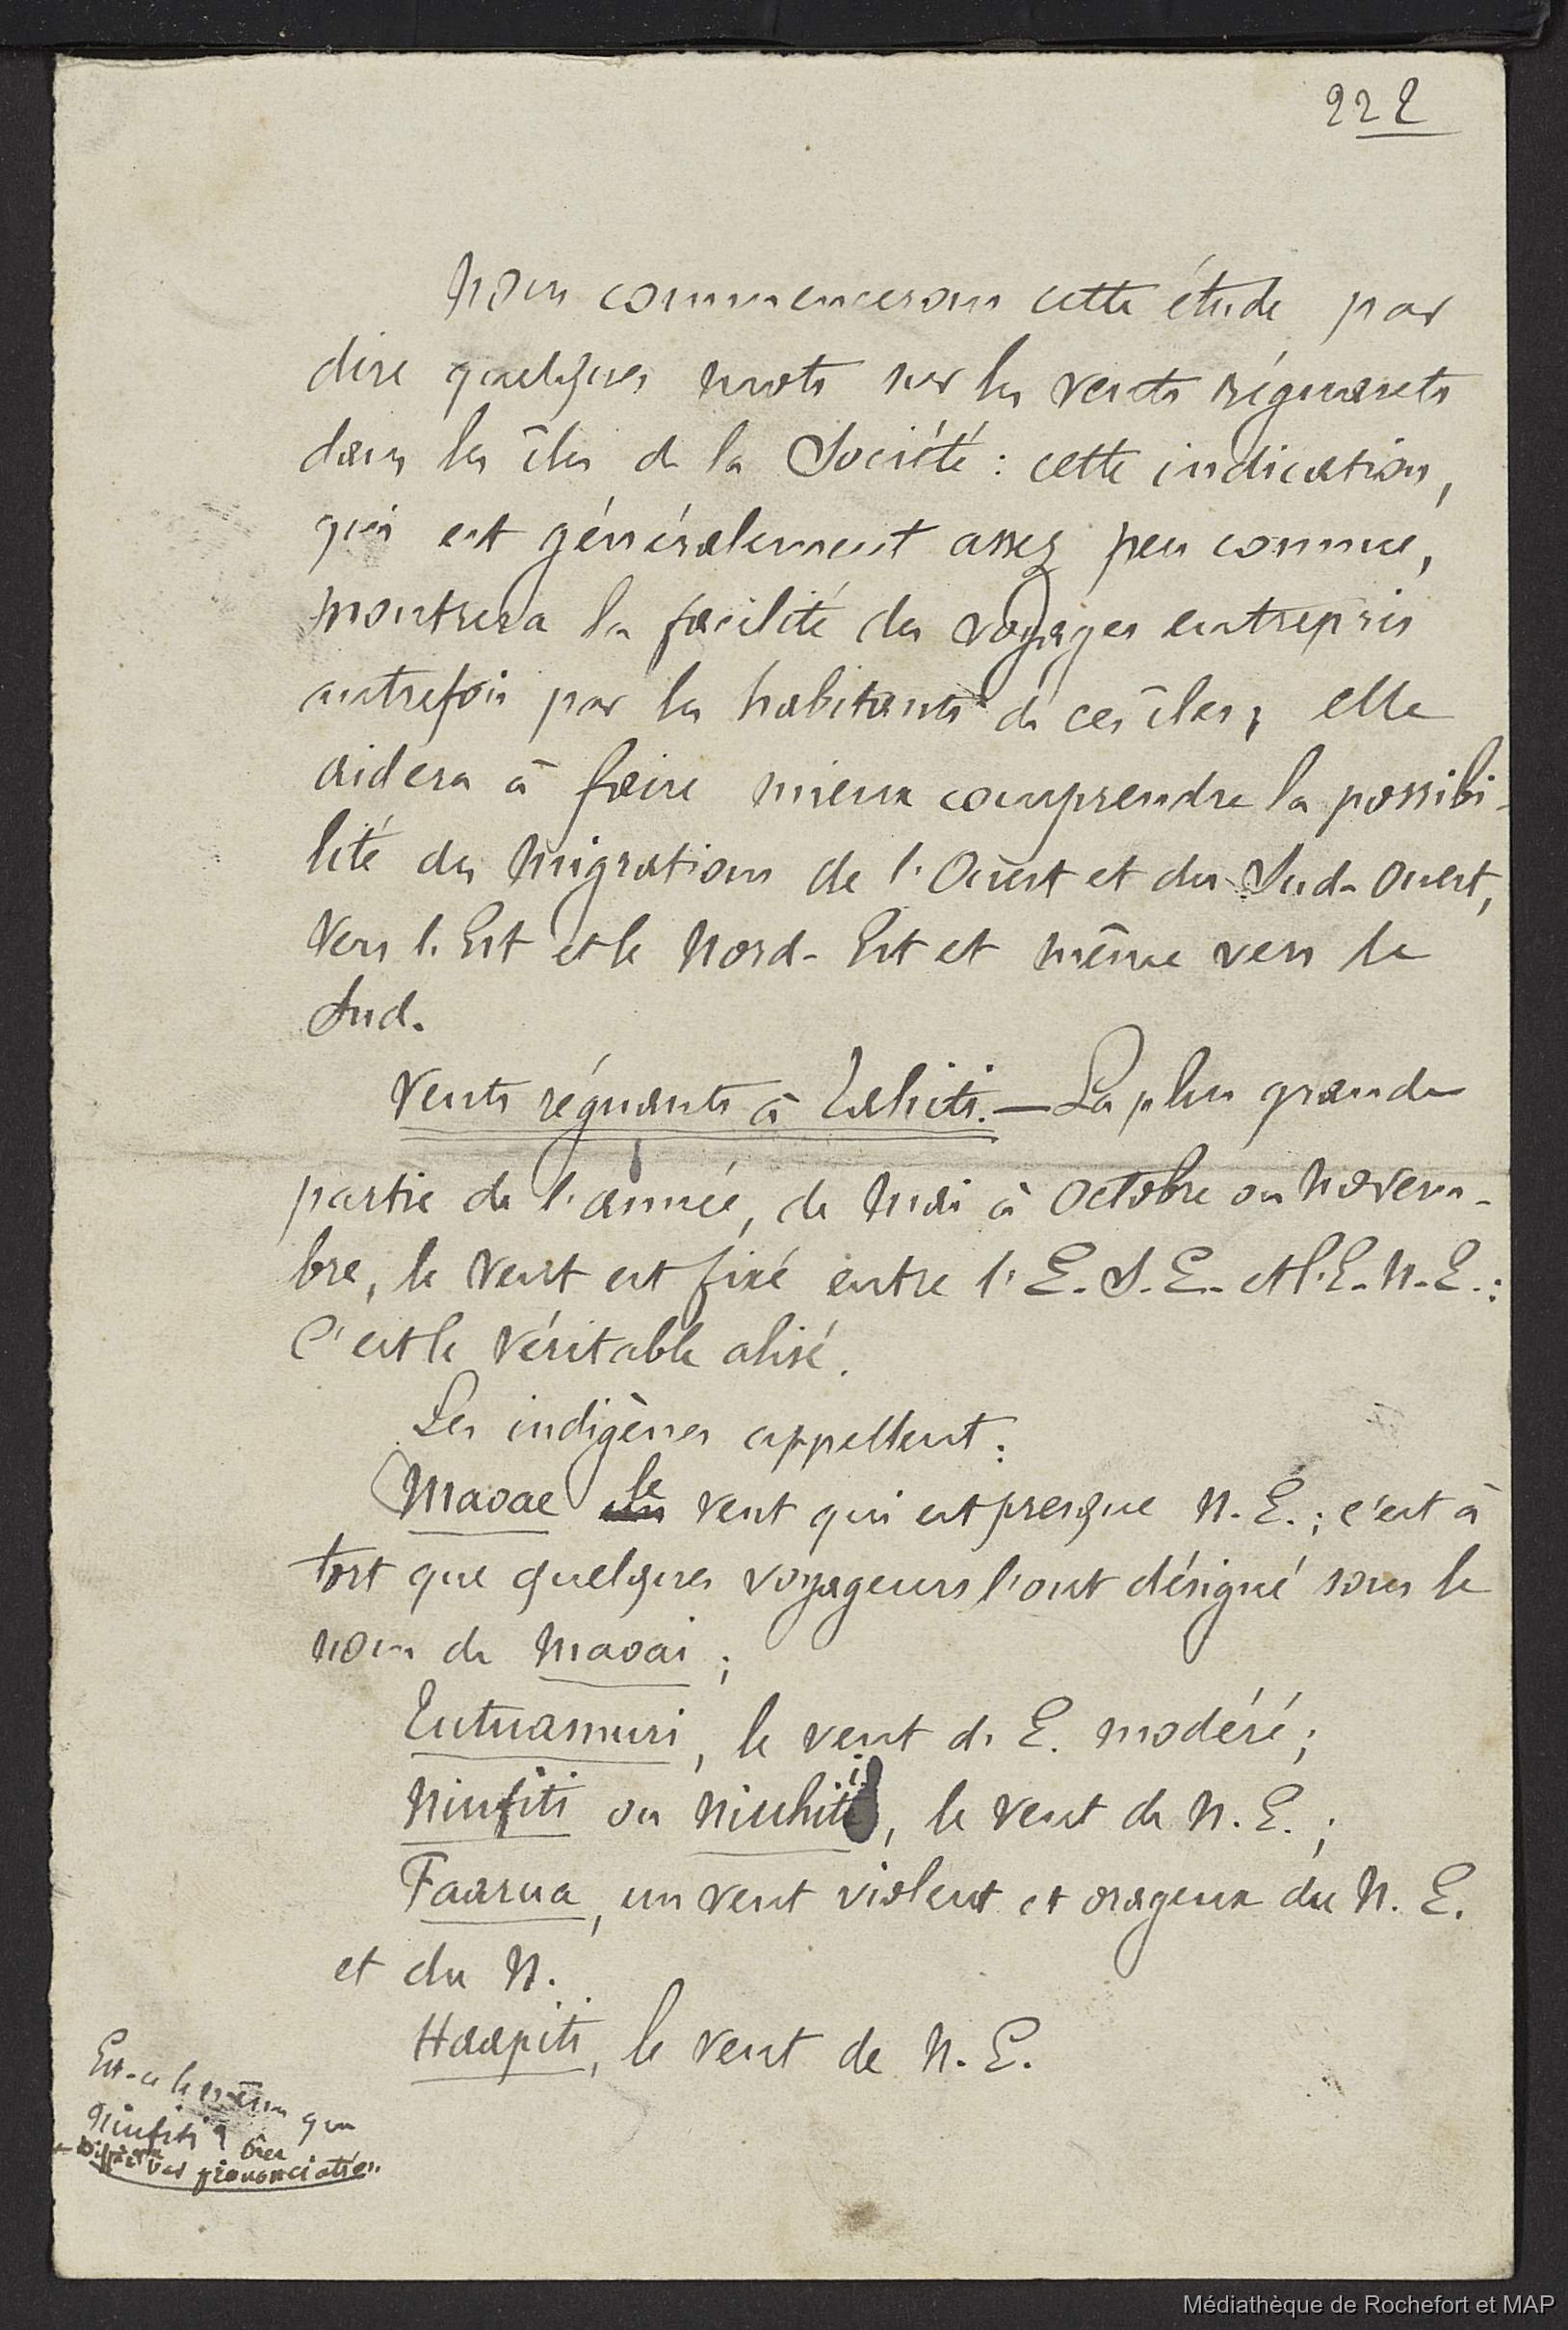 222
Nous commencerons cette étude par
dire quelques mots sur les vents régnants
dans les îles de la Société : cette indication,
qui est généralement assez peu connue,
montrera la facilité des voyages entrepris
autrefois par les habitants de ces îles ; elle
aidera à faire mieux comprendre la possibi-
lité des migrations de l'Ouest et du Sud-Ouest,
vers l'Est et le Nord-Est et même vers le
Sud.
Vents régnants à Tahiti. — La plus grande
partie de l'année, de Mai à Octobre ou Novem-
bre, le vent est fixé entre l'E.S.E. et l'E.N.E. :
C'est le véritable alisé.
Les indigènes appellent :
Maoae le vent qui est presque N.E. ; c'est à
tort que quelques voyageurs l'ont désigné sous le
nom de Maoai ;
Tutuamuri, le vent de E. modéré ;
Niufiti ou Niuhiti, le vent de N.E. ;
Faarua, un vent violent et orageux du N.E.
et du N.
Haapiti, le vent de N.E.
Est-ce le même que
Niufiti ?
prononciation
Médiathèque de Rochefort et MAP